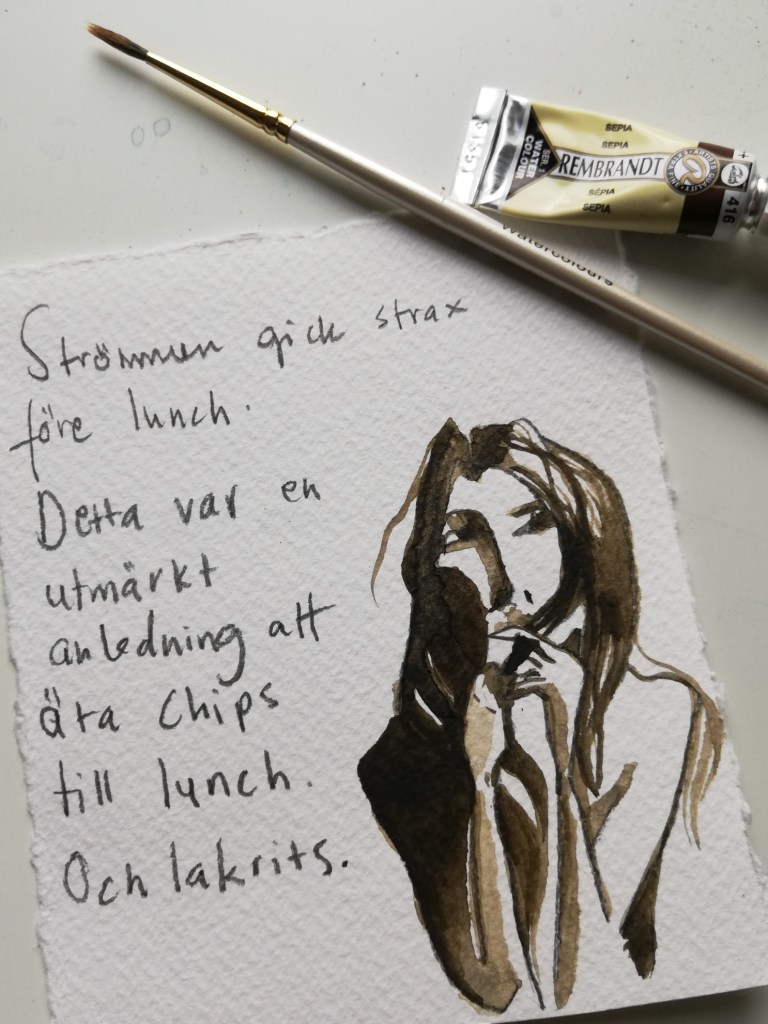 SEPIA
SEPIA
SER. 1
WATER
COLOUR
REMBRANDT
SÉPIA
SEPIA
416
Watercolours
Strömmen gick strax
före lunch.
Detta var en
utmärkt
anledning att
äta chips
till lunch.
Och lakrits.